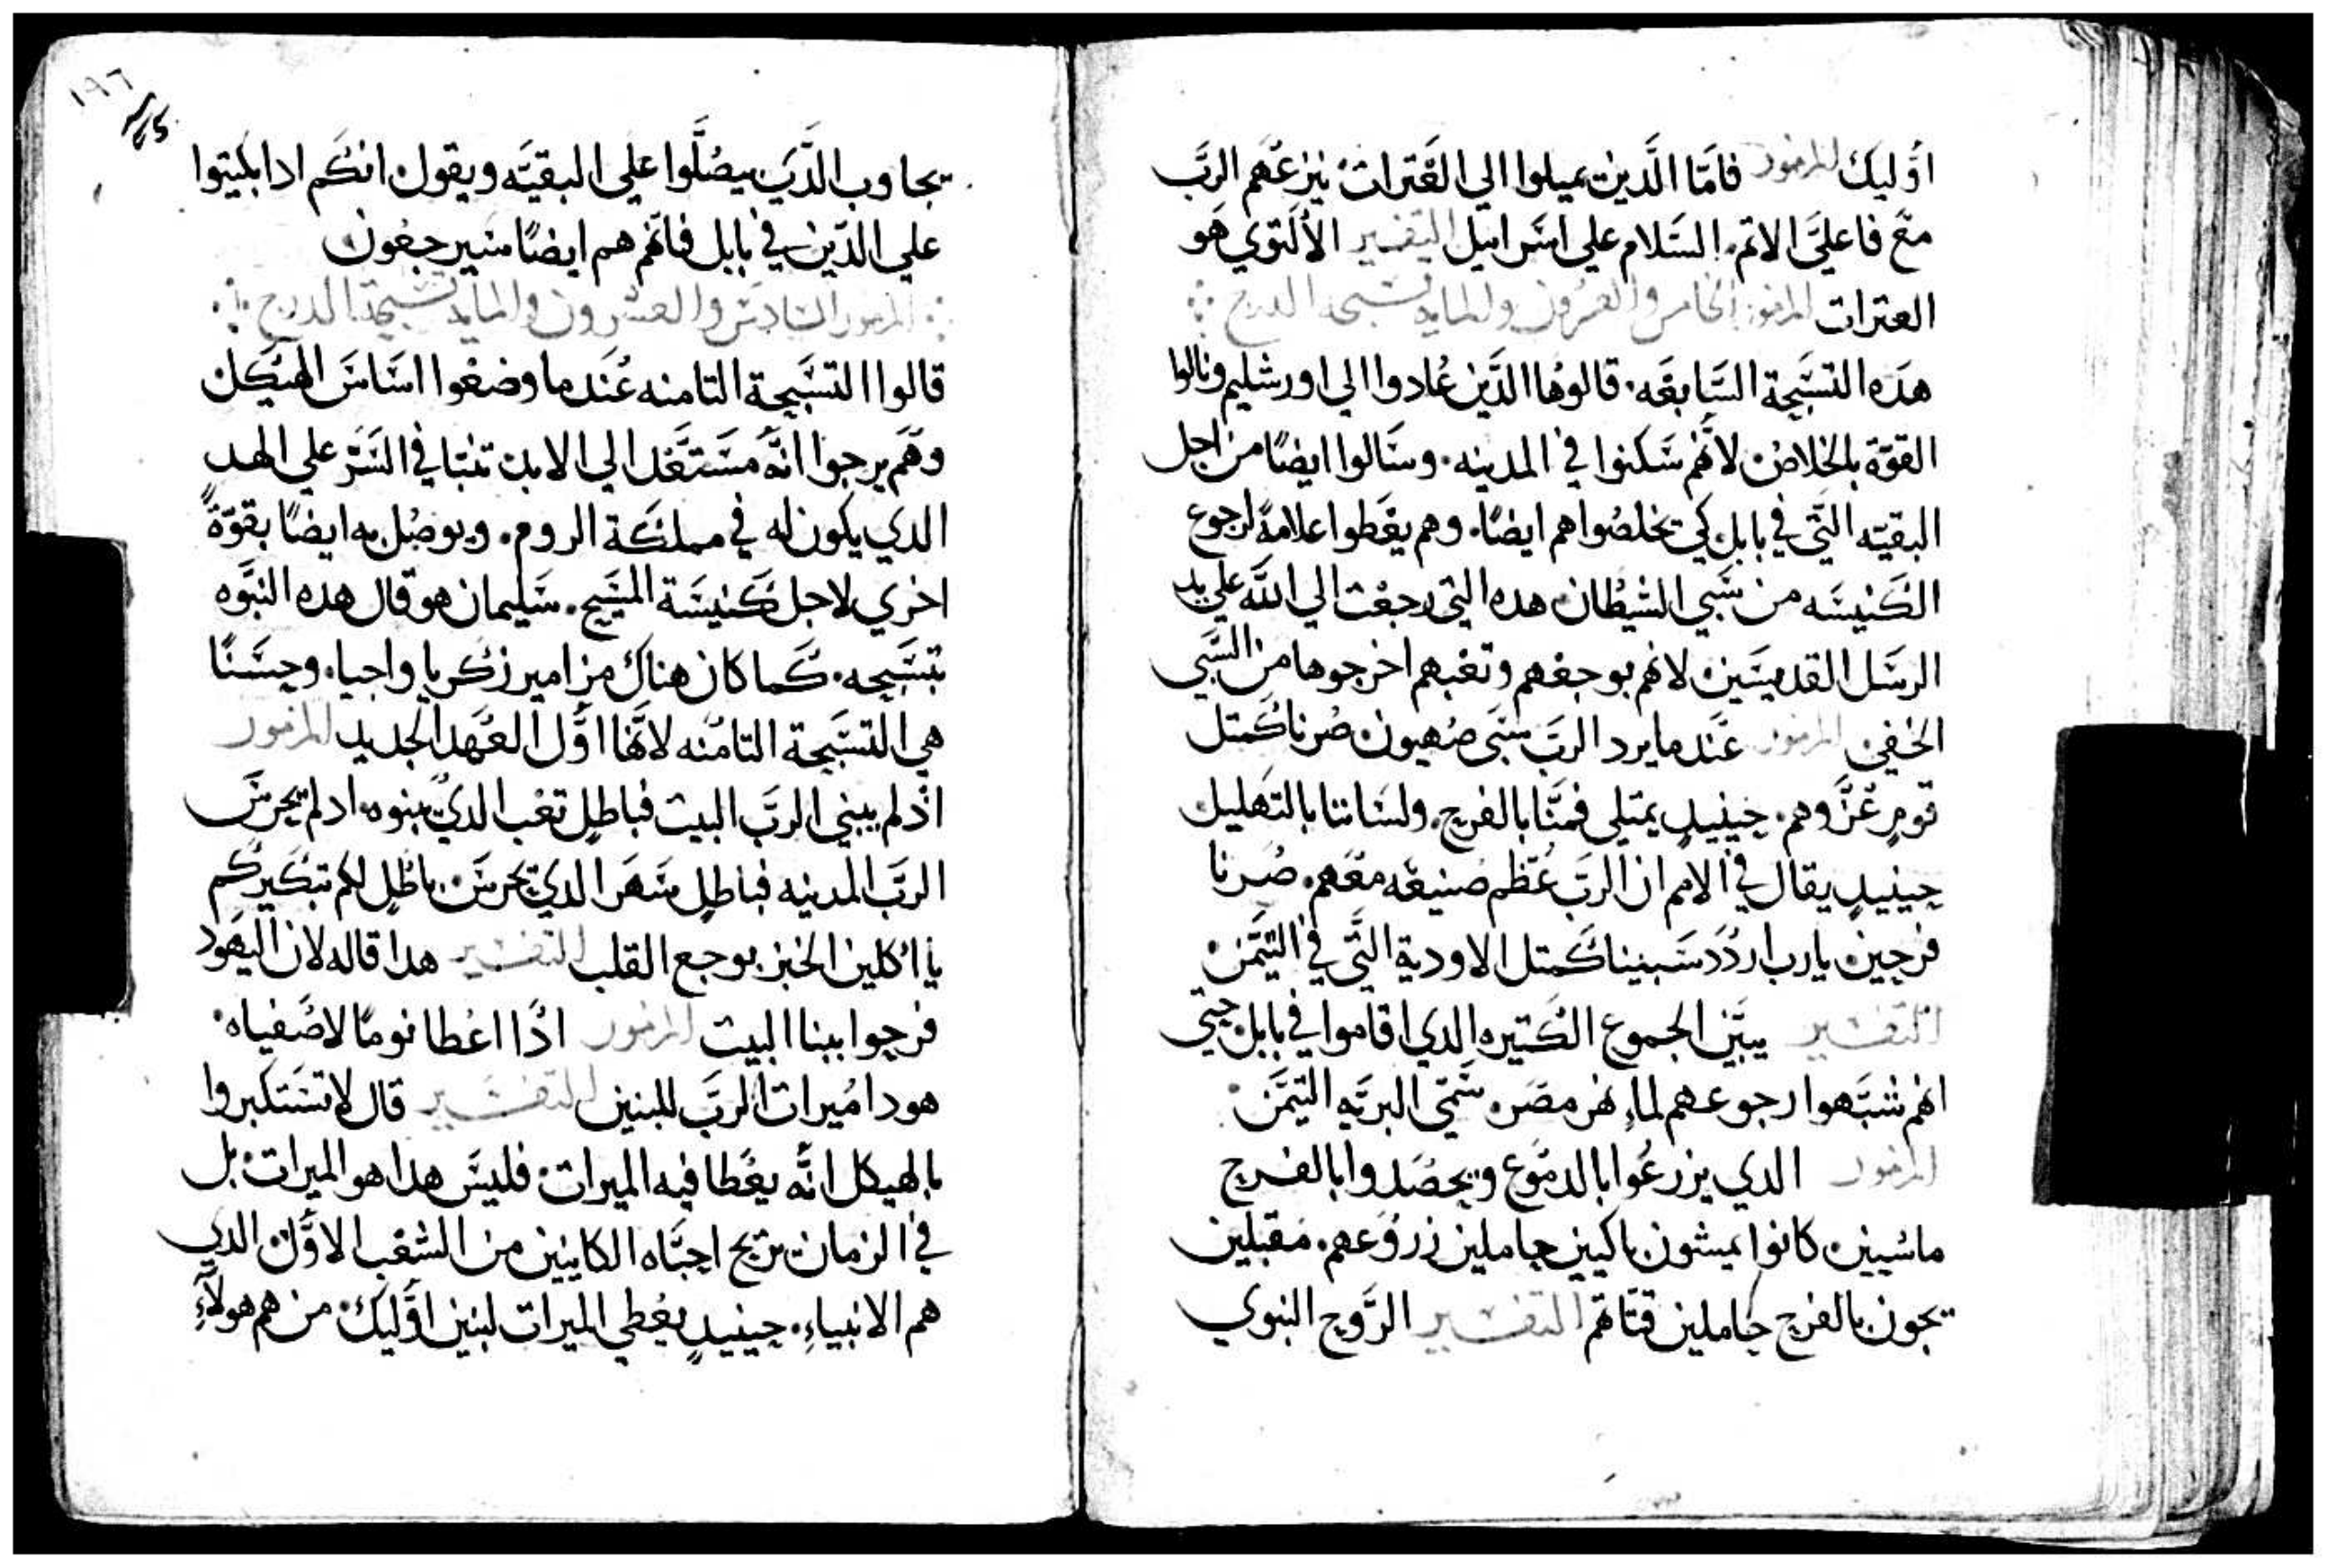 اوليك المزمور فامَّا الَّدين يميلوا الي العترات ينزعهم الربَّ
مع فاعليَّ الاتم. السَّلام علي اسرائيل التفسير الالتوي هو
العترات المزمور الخامس والعشرون والمايه تسبحة الدرج
هده التسبحة السَّابعَه. قالوها الدَّين عادوا الي اورشليم ونالوا
القوَّة بالخلاص لانهم سَكنوا في المدينه. وسَالوا ايضًا من اجل
البقيّه التّي في بابل كي تخلصوا هم ايضًا. وهم يعَطوا علامةً لرجوع
الكنيسَه من سَبي الشيطان هده التي رجعت الي اللَّه علي يد
الرسَل القديسَين لانهم بوجعهم وتعبهم اخرجوها من السَّبي
الخفي المزمور عَندما يرد الربَّ سَبَي صهيون صرنا كمتل
قومٍ عُزَّوهم. حينيدٍ يمتلي فمَّنا بالفرح. ولسَاننا بالتهليل
حينيدٍ يقال في الامم ان الربَّ عُظم صنيعَه معَهم. صُرنا
فرحين يارب اردُد سَبينا كمتل الاودية التَّي في التَّيمَن
التفسير يبيَّن الجموع الكتيره الدي اقاموا في بابل حتي
انهم شبَّهوا رجوعهم لماءِ نهر مصَر. سَمّي البريَّه التيمَّن
المزمور الدي يزرعُوا بالدموع ويحصَدوا بالفرح
ماشيين كانوا يمشون باكيين حاملين زروعهم. مقبلين
يجون بالفرح حاملين قتاتهم التفسير الرَّوح النبوي
١٩٦
يجاوب الدَّين يصَلَّوا علي البقيَّه ويقول انكم ادا بكيتوا
علي الدَّين في بابل فانَّهم هم ايضًا سَيرجعون
المزمور السَّادسَ والعشرون والمايه تسبحة الدرج
قالوا التسَبحة التامنه عُندما وضعَوا اسَاسَ الهيكل
وهَم يرجوا انَّه مسَتعَد الي الابد تنبا في السَتر علي الهد
الدي يكون له في مملكة الروم. ويوصُل به ايضًا بقوَّةً
اخري لاجل كنيسَة المسَيح. سَليمان هو قال هده النبَّوه
بتسَبحه. كما كان هناك مزامير زكريا واجيا. وحسَنًا
هي التسَبحة التامنه لانَّها اوَّل العهَد الجديد المزمور
اذ لم يبني الربَّ البيت فباطلٍ تعب الدي يبنوه. اد لم يحرسَ
الربَّ المدينه فباطلٍ سَهَر الدي يحرسَ. باطَل لكم تبكيركم
يا اكلين الخبز بوجع القلب التفسير هدا قاله لان اليهَود
فرحوا ببنا البيت المزمور ادًا اعُطا نومًا لاصَفياه
هودا ميرات الربَّ للبنين التفسير قال لا تسَتكبروا
بالهيكل انَّه يعَطا فيه الميرات. فليسَ هدا هو الميرات. بل
في الزمان تريح احبَّاه الكاينين من الشعب الاوَّل. الدي
هم الانبياءِ. حينيدٍ يعُطي الميرات لبنين اوليك. من هم هولآءِ